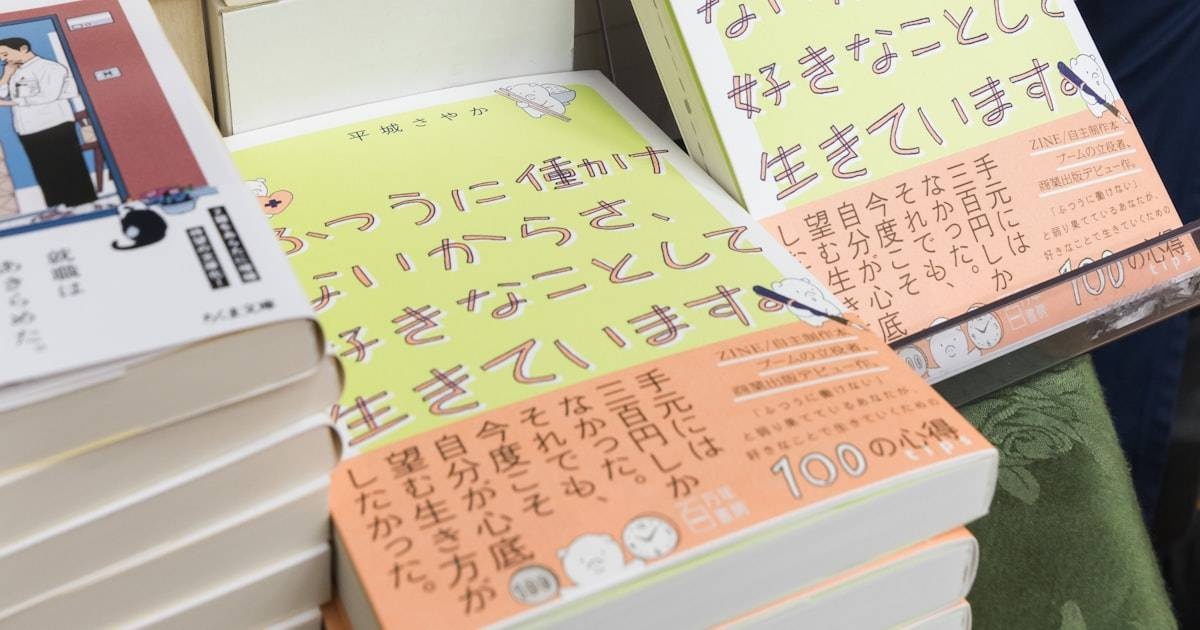 就職は
あきらめた。
ちくま文庫
平城さやか
ふつうに働かけ
ないからさ、
好きなことして
生きています。
ZINE/自主制作本
ブームの立役者、
商業出版デビュー作。
「ふつうに働けない」
と弱り果てているあなたが、
好きなことで生きていくための
100の心得
tips
手元には
三百円しか
なかった。
それでも、
今度こそ
自分が心底
望む生き方が
したかった。
100
百万年書房
好きなことして
生きています。
ZINE/自主制作本
ブームの立役者、
商業出版デビュー作。
「ふつうに働けない」
と弱り果てているあなたが、
好きなことで生きていくための
100の心得
tips
手元にはしか
三百円
なかった。
それでも、
今度こそ
自分が心底
望む生き
した